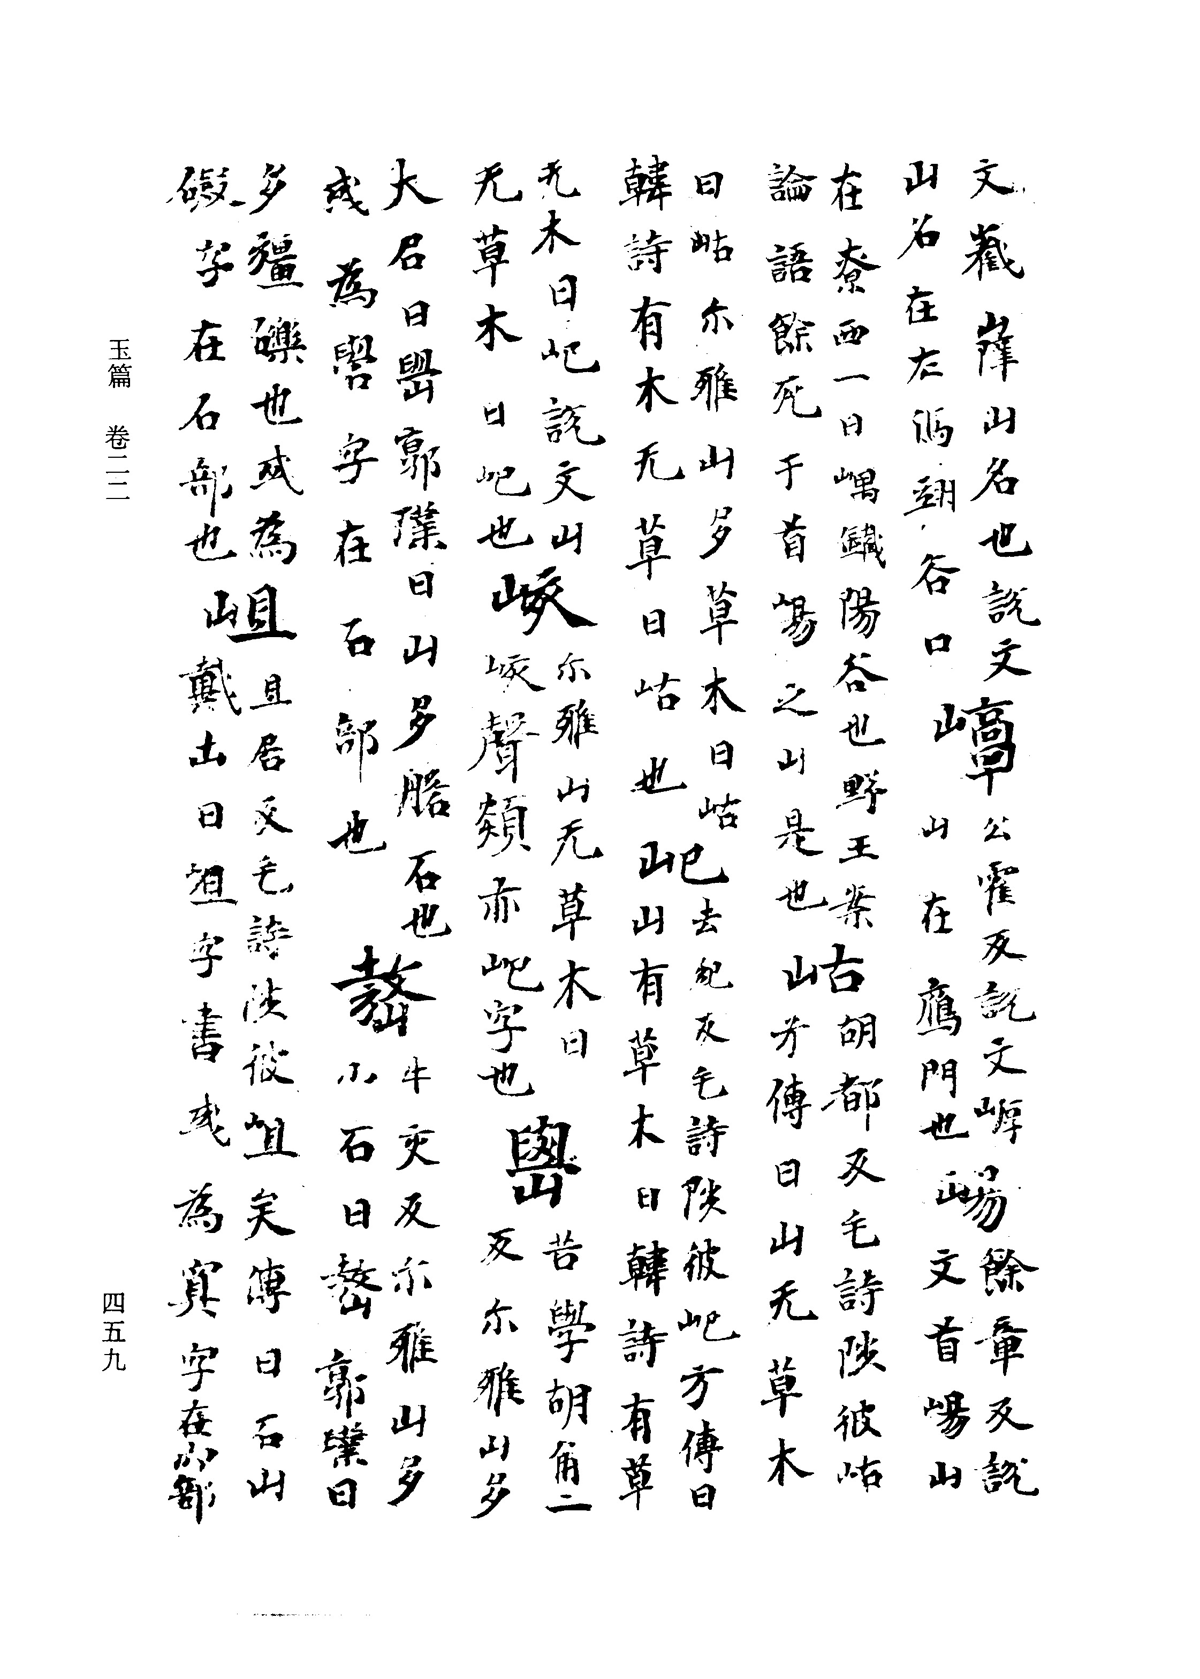 文嶻嶭山名也説文山名在左馮翊谷口崞公霍反説文崞山在鴈門也崵餘章反説文首崵山
在遼西一曰嵎鐡陽谷也野王案論語餘死于首崵之山是也岵胡都反毛詩陟彼岵方傳曰山无草木
曰岵尓雅山多草木曰岵韓詩有木无草曰岵也屺去紀反毛詩陟彼屺方傳曰山有草木曰韓詩有草
无木曰屺説文山无草木曰屺也峐尓雅山无草木曰峐聲類亦屺字也嶨苦學胡角二反尓雅山多
大石曰嶨郭璞曰山多石也或為礐字在石部也嶅牛交反尓雅山多小石曰嶅郭璞曰
多礓礫也或為磝字在石部也岨且居反毛詩陟彼岨矣傳曰石山戴土曰岨字書或為字在部
玉篇 卷二二
四五九